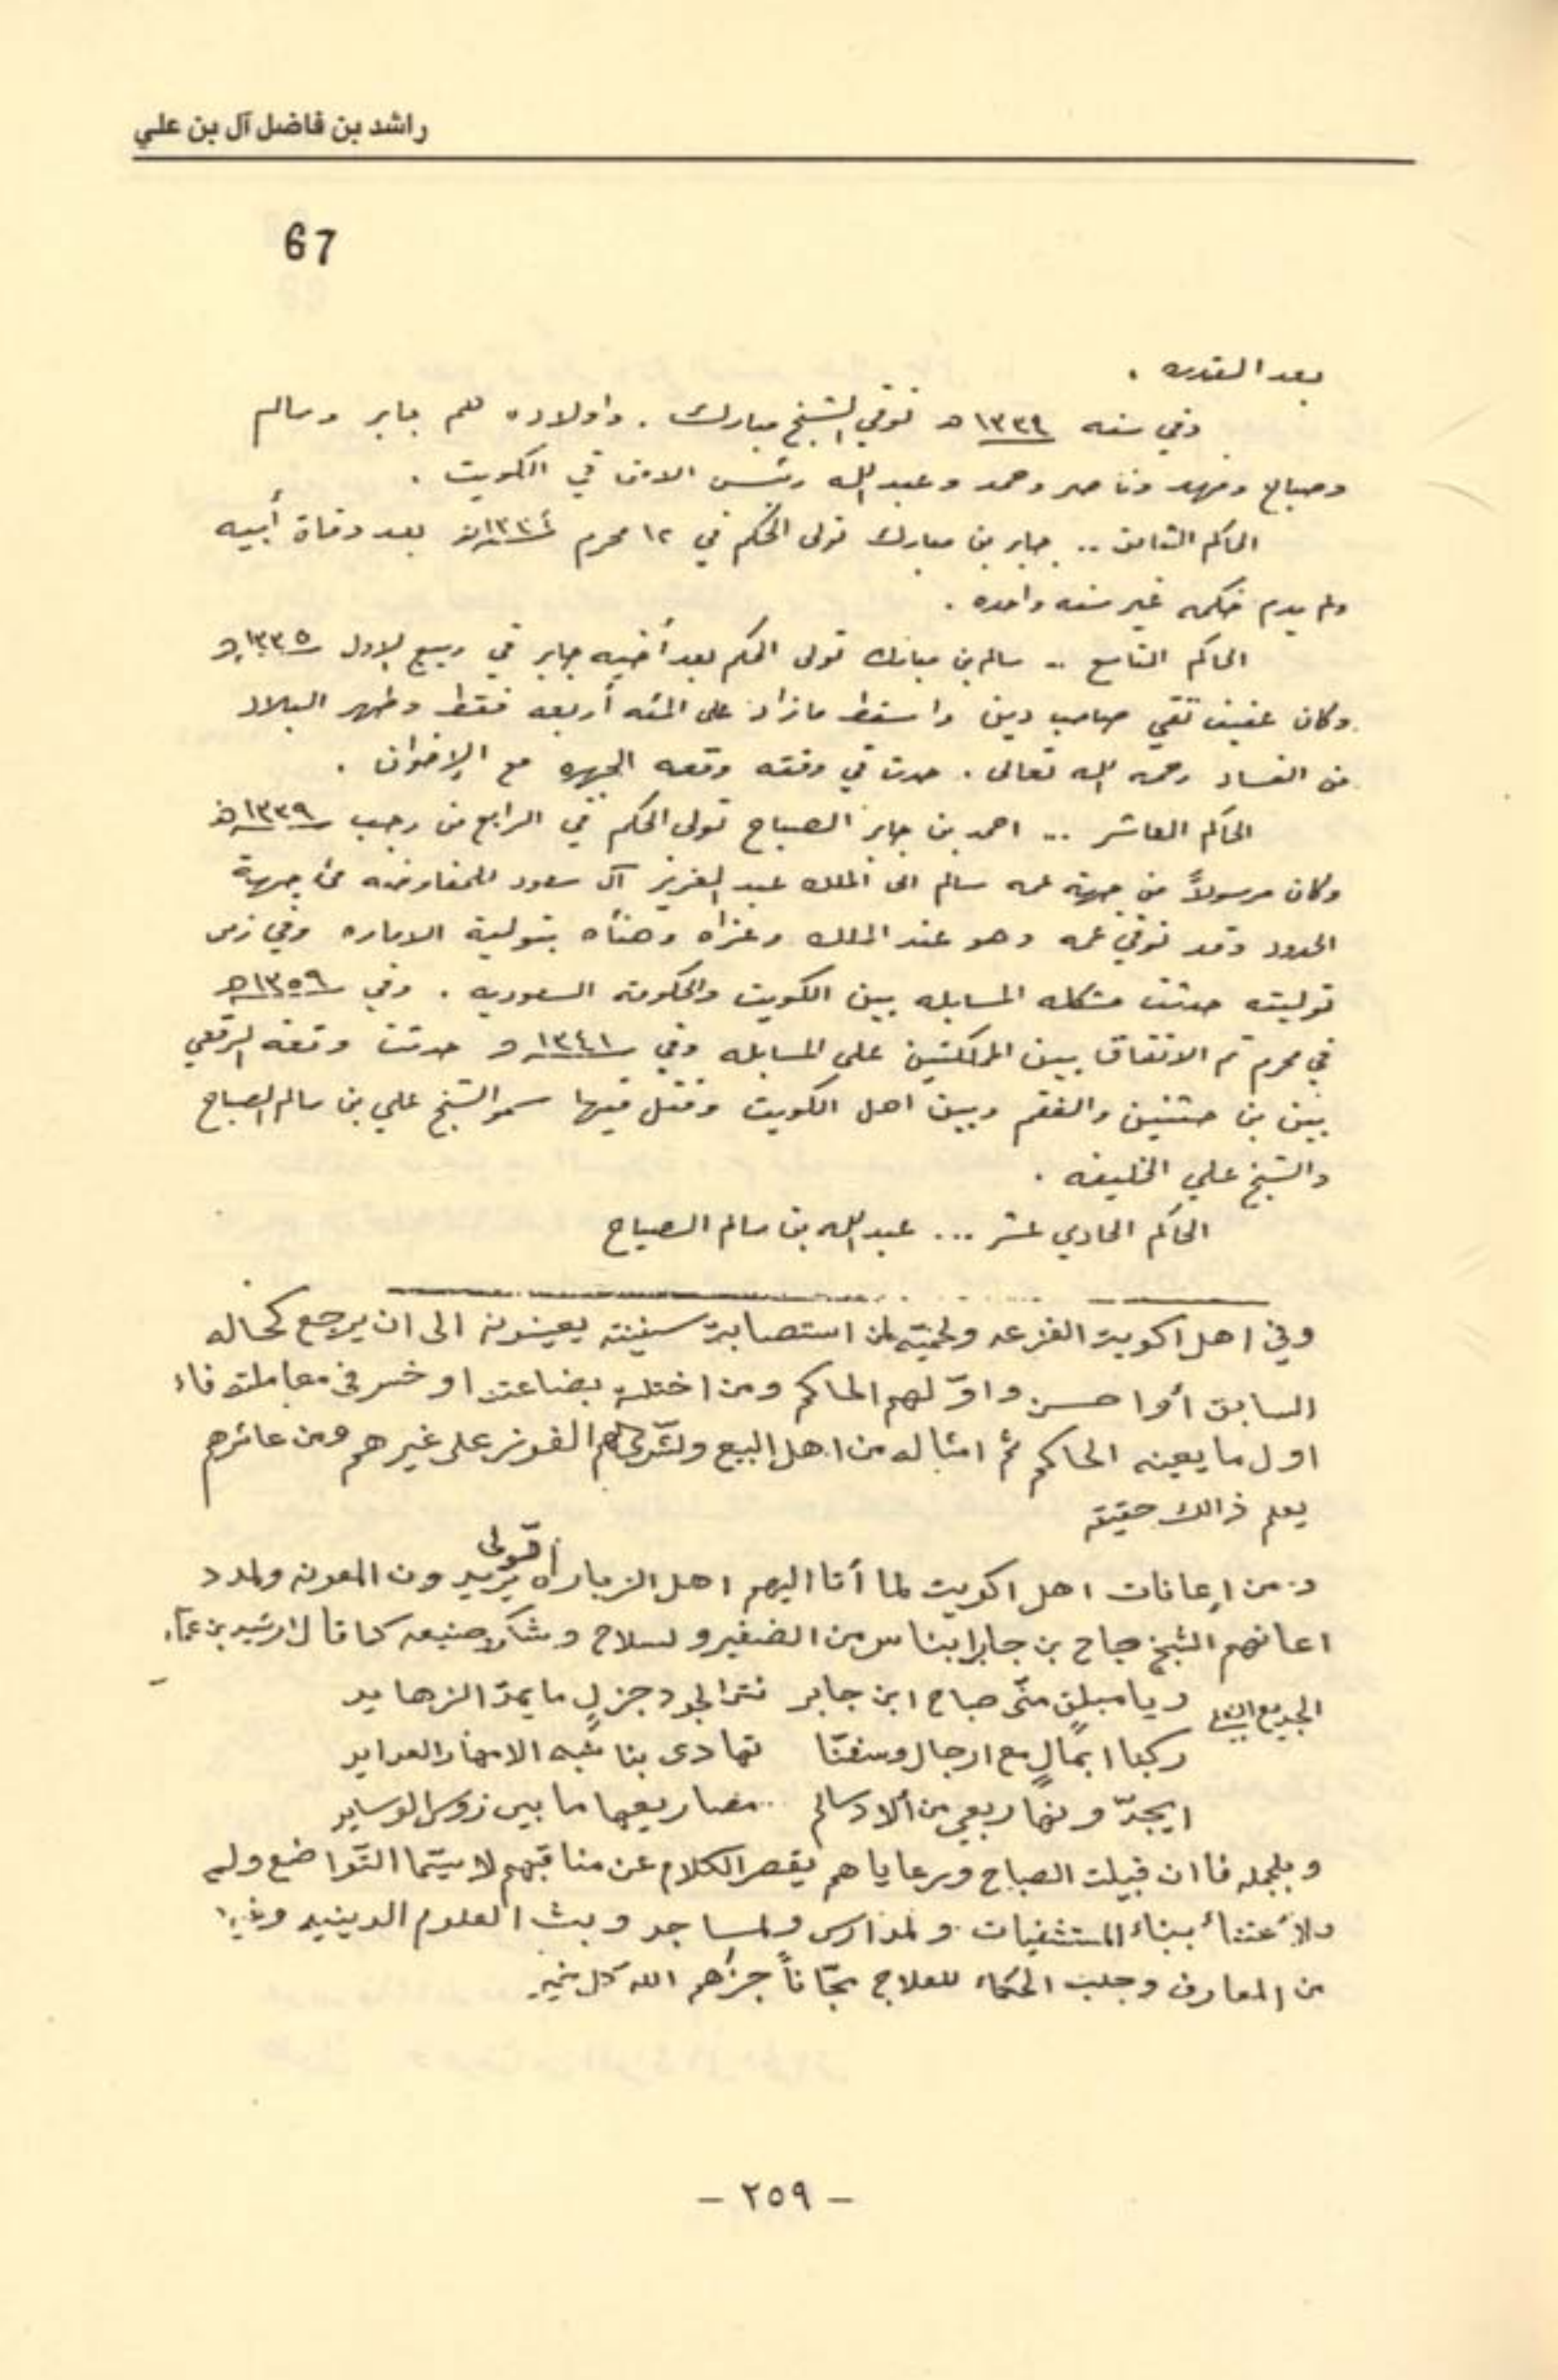 راشد بن فاضل آل بن علي
67
بعد القدره .
وفي سنه ١٣٣٤ هـ توفي الشيخ مبارك . واولاده هم جابر وسالم
وصباح وفهد وناصر وحمد وعبد الله رئيس الامن في الكويت .
الحاكم الثامن .. جابر بن مبارك تولى الحكم في ١٢ محرم ١٣٣٤ هـ بعد وفاة أبيه
ولم يدم حكمه غير سنه واحده .
الحاكم التاسع .. سالم بن مبارك تولى الحكم بعد أخيه جابر في ربيع الاول ١٣٣٥ هـ
وكان عفيف تقي صاحب دين واسقط مازاد على المئه أربعه فقط وطهر البلاد
من الفساد رحمه الله تعالى . حدث في وقته وقعه الجهره مع الإخوان .
الحاكم العاشر ... احمد بن جابر الصباح تولى الحكم في الرابع من رجب ١٣٣٩ هـ
وكان مرسولاً من جهة عمه سالم الى الملك عبد العزيز آل سعود للمفاوضه من جهة
الحدود وقد توفي عمه وهو عند الملك وعزاه وهنأه بتولية الاماره وفي زمن
توليته حدثت مشكله المسابله بين الكويت والحكومه السعوديه . وفي ١٣٥٩ هـ
في محرم تم الاتفاق بين المملكتين على المسابله وفي ١٣٤١ هـ حدثت وقعه الرقعي
بين بن حثلين والفقم وبين اهل الكويت وقتل فيها سمو الشيخ علي بن سالم الصباح
والشيخ علي الخليفه .
الحاكم الحادي عشر ... عبد الله بن سالم الصباح
وفي اهل اكويت الفزعه ولحميّه لمن استصابة سفينته يعينونه الى ان يرجع كحاله
السابق أوا حسن واوّلهم الحاكم ومن اختلة بضاعته او خسر في معاملته فاء
اول ما يعينه الحاكم ثم امثاله من اهل البيع ولشرى لهم الفوز على غيرهم ومن عاشرهم
يعلم ذالك حقيقه
ومن إعانات اهل اكويت لما أتا اليهم اهل الزباراه يريدون المعونه ولمدد
اعانهم الشيخ صباح بن جابر ابناس من الضفير ولسلاح وشكر صنيعه كما قال
ويا مبلغٍ منّى صباح ابن جابر نثر الجود جزلٍ ما يمدّ الزهايد
ركبنا ابمالٍ مع ارجال وسفنّا تهادى بنا شبه الامهار العدايد
ربعي من سالم ما بين زوس الوسايد
وبلجمله فا ان قبيلة الصباح ورعاياهم يقصر الكلام عن مناقبهم لا سيّما التّواضع
ولأعتناء ببناء المستشفيات ولمدارس ولمساجد وبث العلوم الدينيه وغيرها
من المعارف وجلب الحكماء للعلاج مجّاناً جزاهم الله كل خير
– ٢٥٩ –